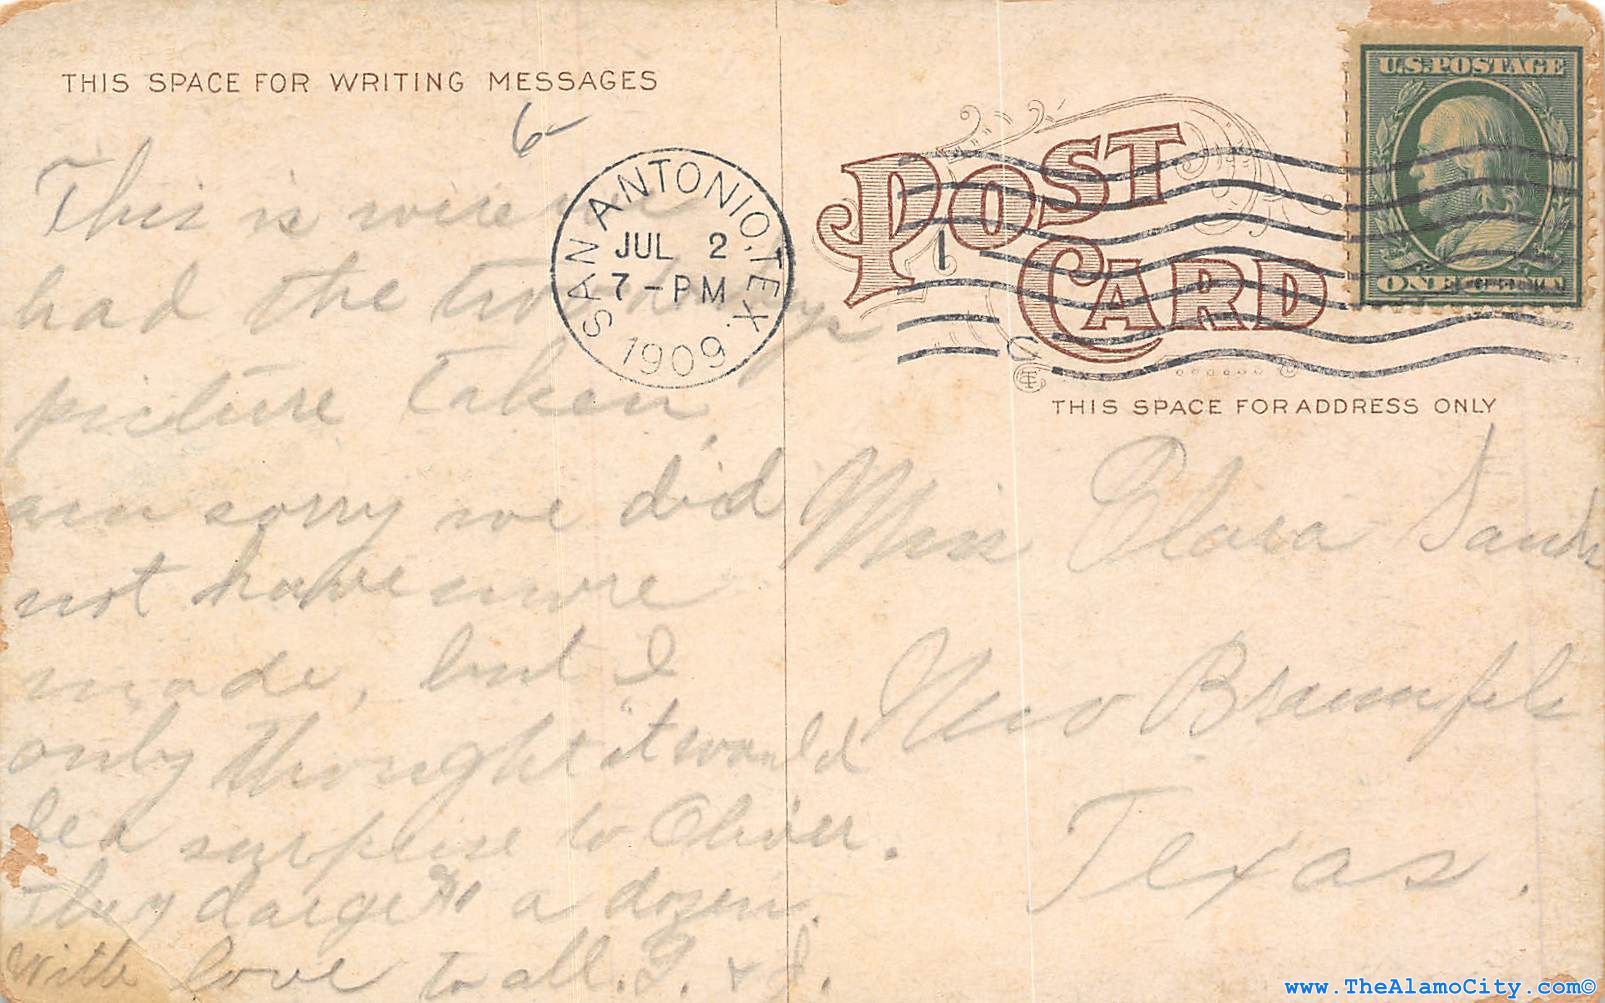 THIS SPACE FOR WRITING MESSAGES
6-
This is wise we
had the two boys
picture taken,
am sorry we did
not have more
made, but I
only thought it would
be a surprise to Oliver.
They charge $1 a dozen.
With love to all. F. & I.
SAN ANTONIO. TEX.
JUL 2
7-PM
1909
1
POST
CARD
U.S. POSTAGE
ONE
THIS SPACE FOR ADDRESS ONLY
Miss Clara
New Braunfels
Texas.
www.TheAlamoCity.com©